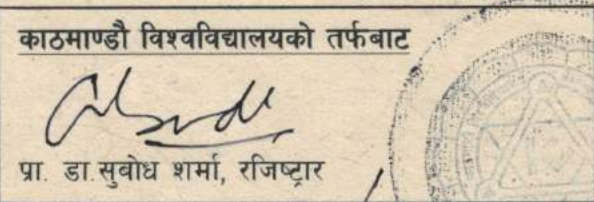 काठमाण्डौ विश्वविद्यालयको तर्फबाट
प्रा. डा.सुबोध शर्मा, रजिष्ट्रार